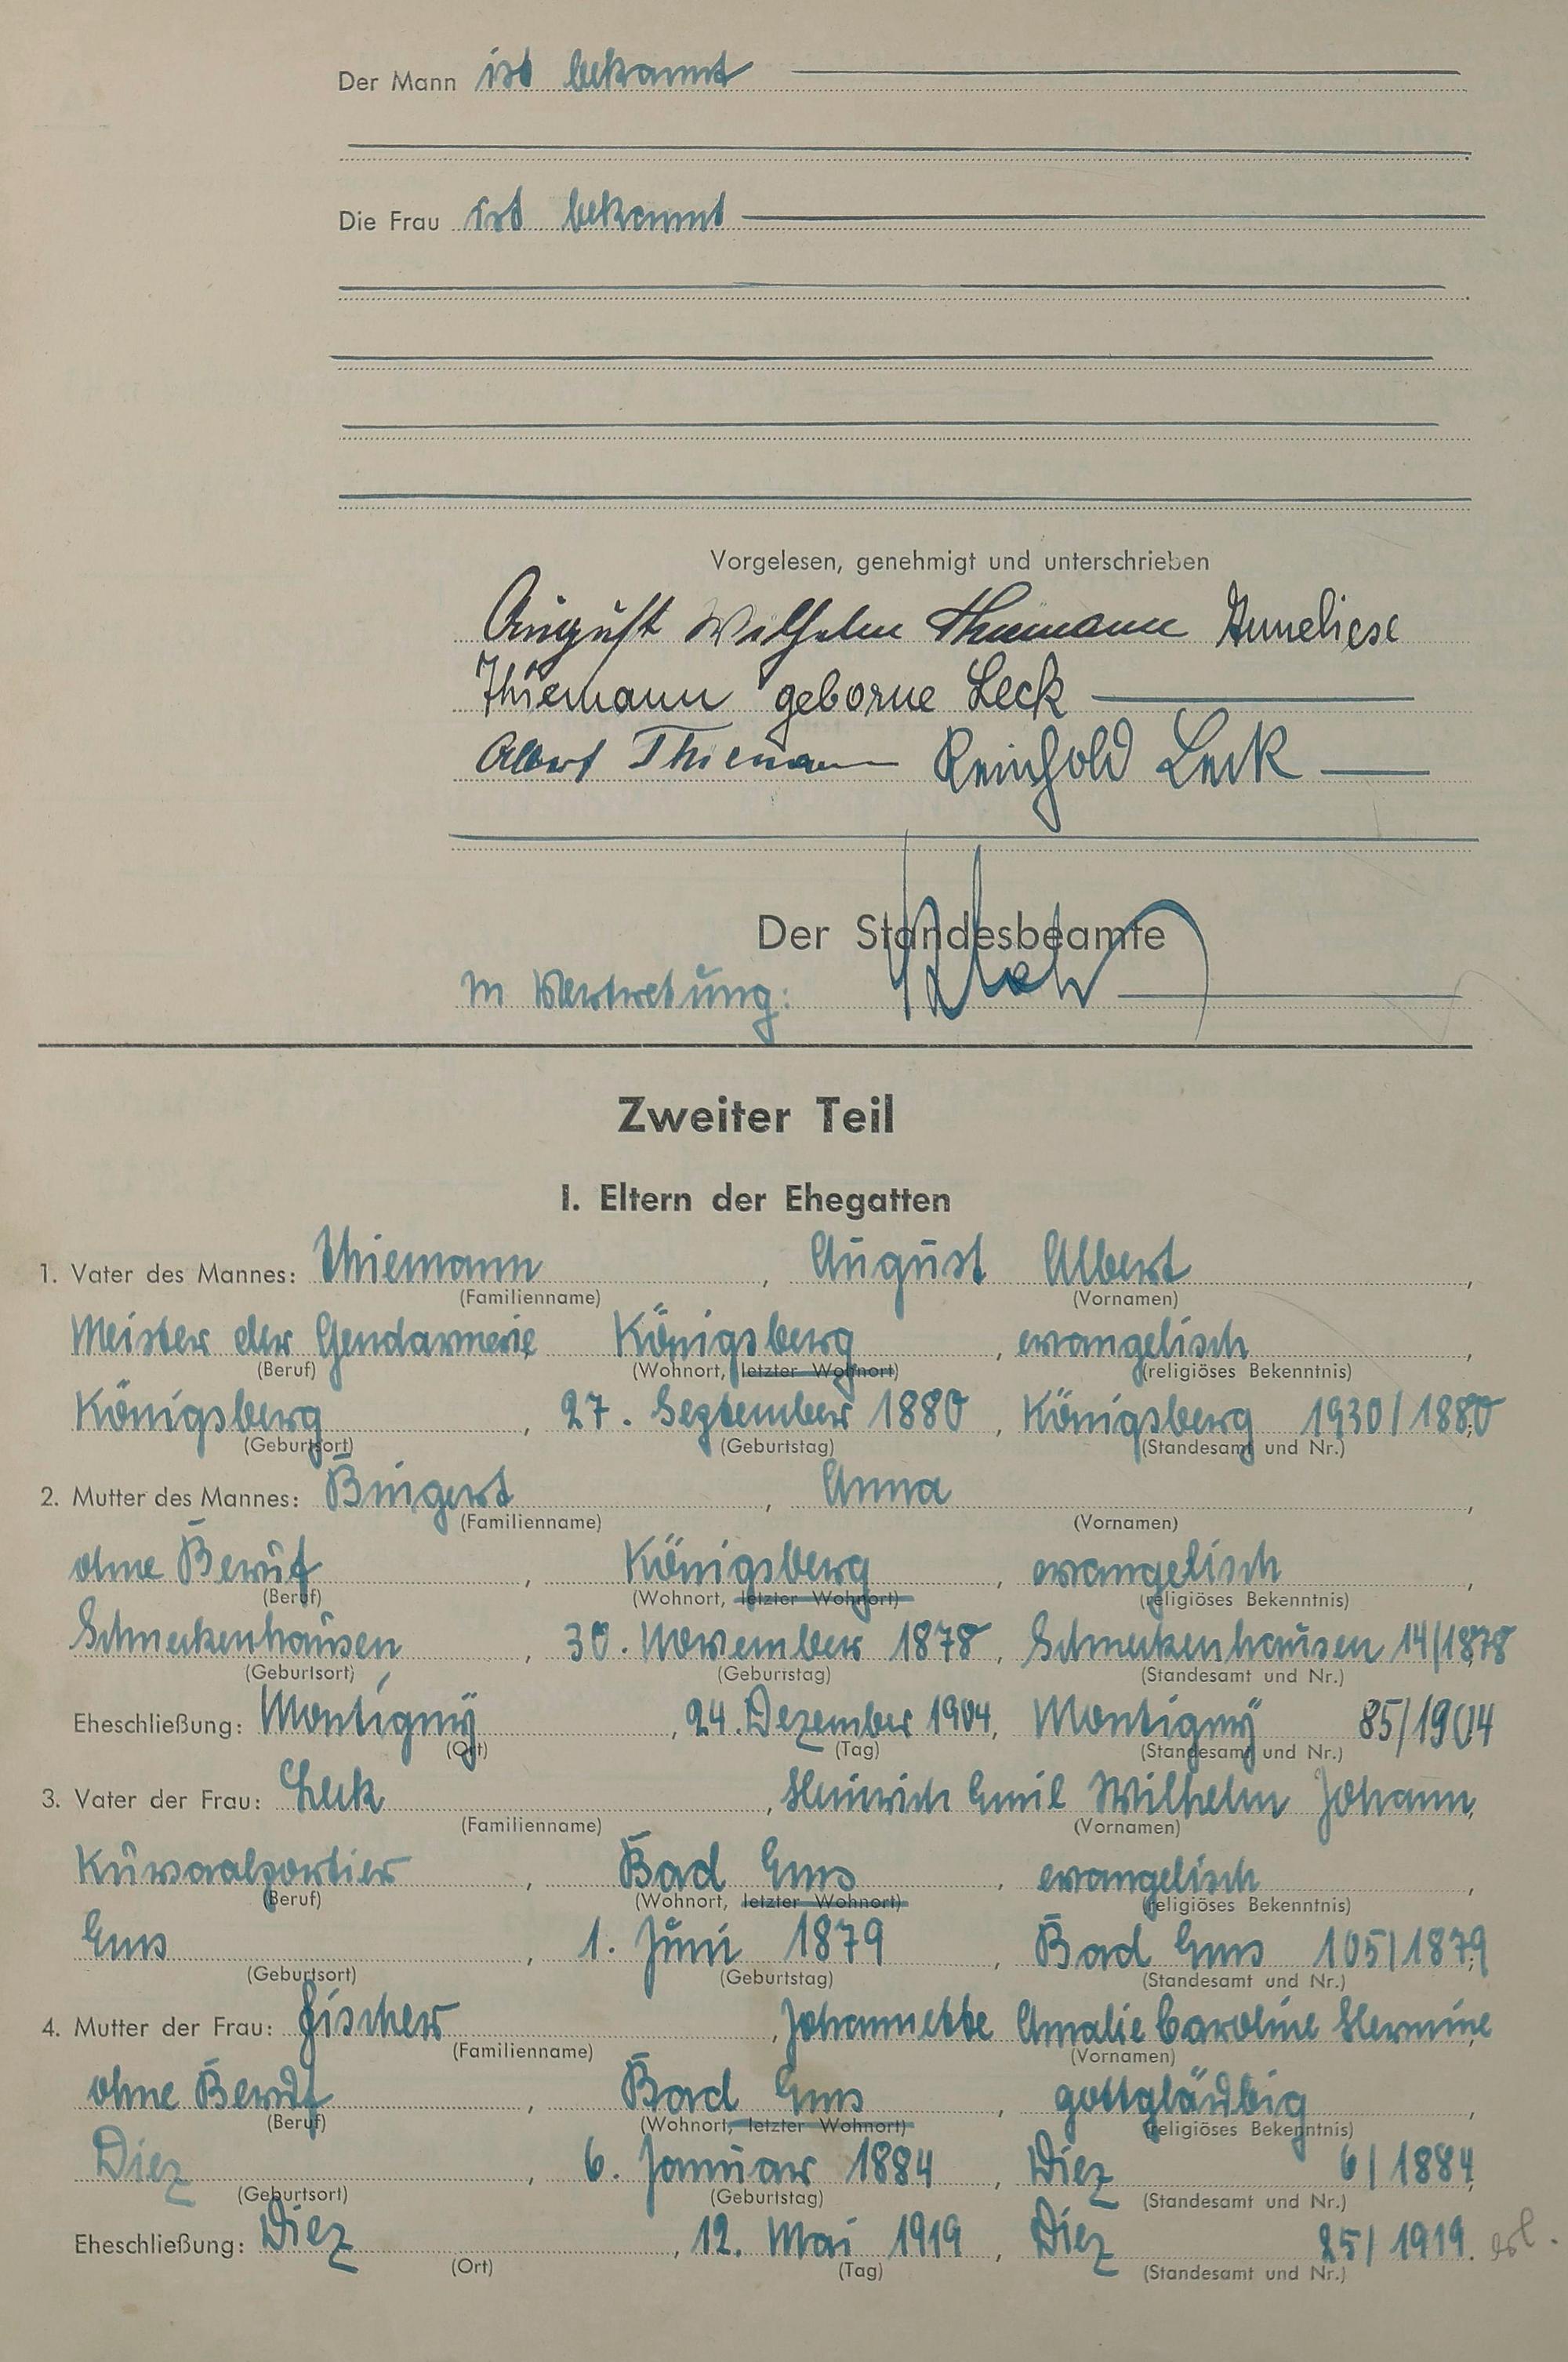 Der Mann ist bekannt
Die Frau ist bekannt
Vorgelesen, genehmigt und unterschrieben
August Wilhelm Thiemann Anneliese
Thiemann geborne Leck
Albert Thiemann Reinhold Leck
Der Standesbeamte
In Vertretung:
Zweiter Teil
I. Eltern der Ehegatten
1. Vater des Mannes: Thiemann, August Albert,
(Familienname) (Vornamen)
Meister der Gendarmerie Königsberg, evangelisch,
(Beruf) (Wohnort, letzter Wohnort) (religiöses Bekenntnis)
Königsberg, 27. September 1880, Königsberg 1930/1880,
(Geburtsort) (Geburtstag) (Standesamt und Nr.)
2. Mutter des Mannes: Bingert, Anna,
(Familienname) (Vornamen)
ohne Beruf, Königsberg, evangelisch,
(Beruf) (Wohnort, letzter Wohnort) (religiöses Bekenntnis)
Schneckenhausen, 30. November 1878, Schneckenhausen 14/1878
(Geburtsort) (Geburtstag) (Standesamt und Nr.)
Eheschließung: Montigny, 24. Dezember 1904, Montigny 85/1904
(Ort) (Tag) (Standesamt und Nr.)
3. Vater der Frau: Leck, Heinrich Emil Wilhelm Johann,
(Familienname) (Vornamen)
Kursaalportier, Bad Ems, evangelisch,
(Beruf) (Wohnort, letzter Wohnort) (religiöses Bekenntnis)
Ems, 1. Juni 1879, Bad Ems 105/1879,
(Geburtsort) (Geburtstag) (Standesamt und Nr.)
4. Mutter der Frau: Fischer, Johannette Amalie Caroline Hermine,
(Familienname) (Vornamen)
ohne Beruf, Bad Ems, gottgläubig,
(Beruf) (Wohnort, letzter Wohnort) (religiöses Bekenntnis)
Diez, 6. Januar 1884, Diez 6/1884,
(Geburtsort) (Geburtstag) (Standesamt und Nr.)
Eheschließung: Diez, 12. Mai 1919, Diez 25/1919.
(Ort) (Tag) (Standesamt und Nr.)